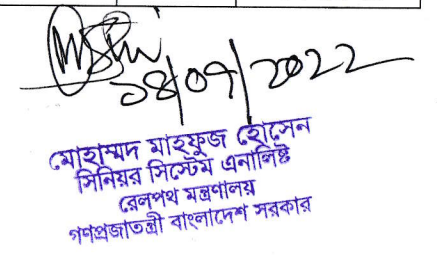 ১৪/০৭/২০২২
মোহাম্মদ মাহফুজ হোসেন
সিনিয়র সিস্টেম এনালিষ্ট
রেলপথ মন্ত্রণালয়
গণপ্রজাতন্ত্রী বাংলাদেশ সরকার